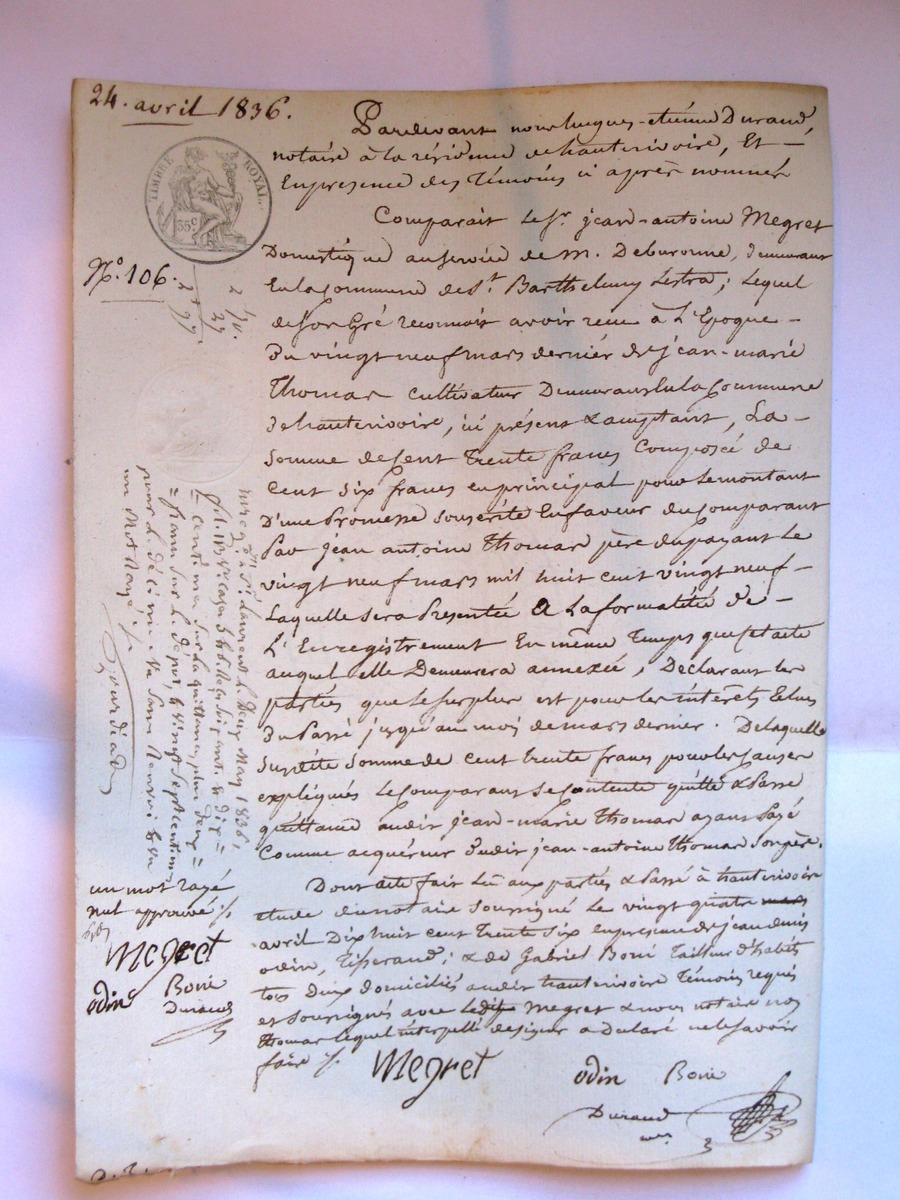 24. avril 1836.
Pardevant nous hugues-étienne Durand,
notaire à la résidence de hauterivoire, Et
En presence des Témoins ci après nommés
TIMBRE ROYAL
35c
Comparait le Sr. jean-antoine Megret
Domestique au service de m. Deburonne, demeurant
N.o 106.
En la Commune de St. Barthelemy Lestra; lequel
de son Gré reconnoit avoir recu à L'Epoque
Du vingt neuf mars dernier de jean-marie
Thomas cultivateur Demeurant en la Commune
de hauterivoire, ici présent & acceptant, La
Somme de Cent Trente francs Composée de
Cent Six francs en principal pour le montant
D'une Promesse Souscrite En faveur du Comparant
Par jean antoine Thomas père du payant Le
vingt neuf mars mil huit cent vingt neuf
Laquelle sera Presentée à La formalitée de
L'Enregistrement En même Temps que cet acte
auquel elle Demeurera annexée, Déclarant les
parties que le surplus est pour les intérêts Echus
Du Passé jusqu'au moi de mars dernier. De laquelle
Susdite Somme de cent trente francs pour les Causes
expliqués Le comparant Se contente quitte & Passe
quittance audit jean-marie Thomas ayant Payé
Comme acquéreur Dudit jean-antoine Thomas Son père.
Dont acte fait Lu aux parties & Passé à hauterivoire
étude du notaire Soussigné Le vingt quatre mars
avril Dix huit cent Trente Six en presence de jean denis
odin, Tisserand; & de Gabriel Boni Tailleur d'habits
tos deux domiciliés audit hauterivoire Témoins requis
et Soussignés avec Ledit Megret & nous notaire non
Thomas lequel interpellé de signer a declaré ne le savoir
faire ./.
Megret
odin Boni
Durand
nre
Enreg. à St. Laurent le Deux May 1836,
un mot rayé
nul approuvé ./.
Megret
odin Boni
Durand